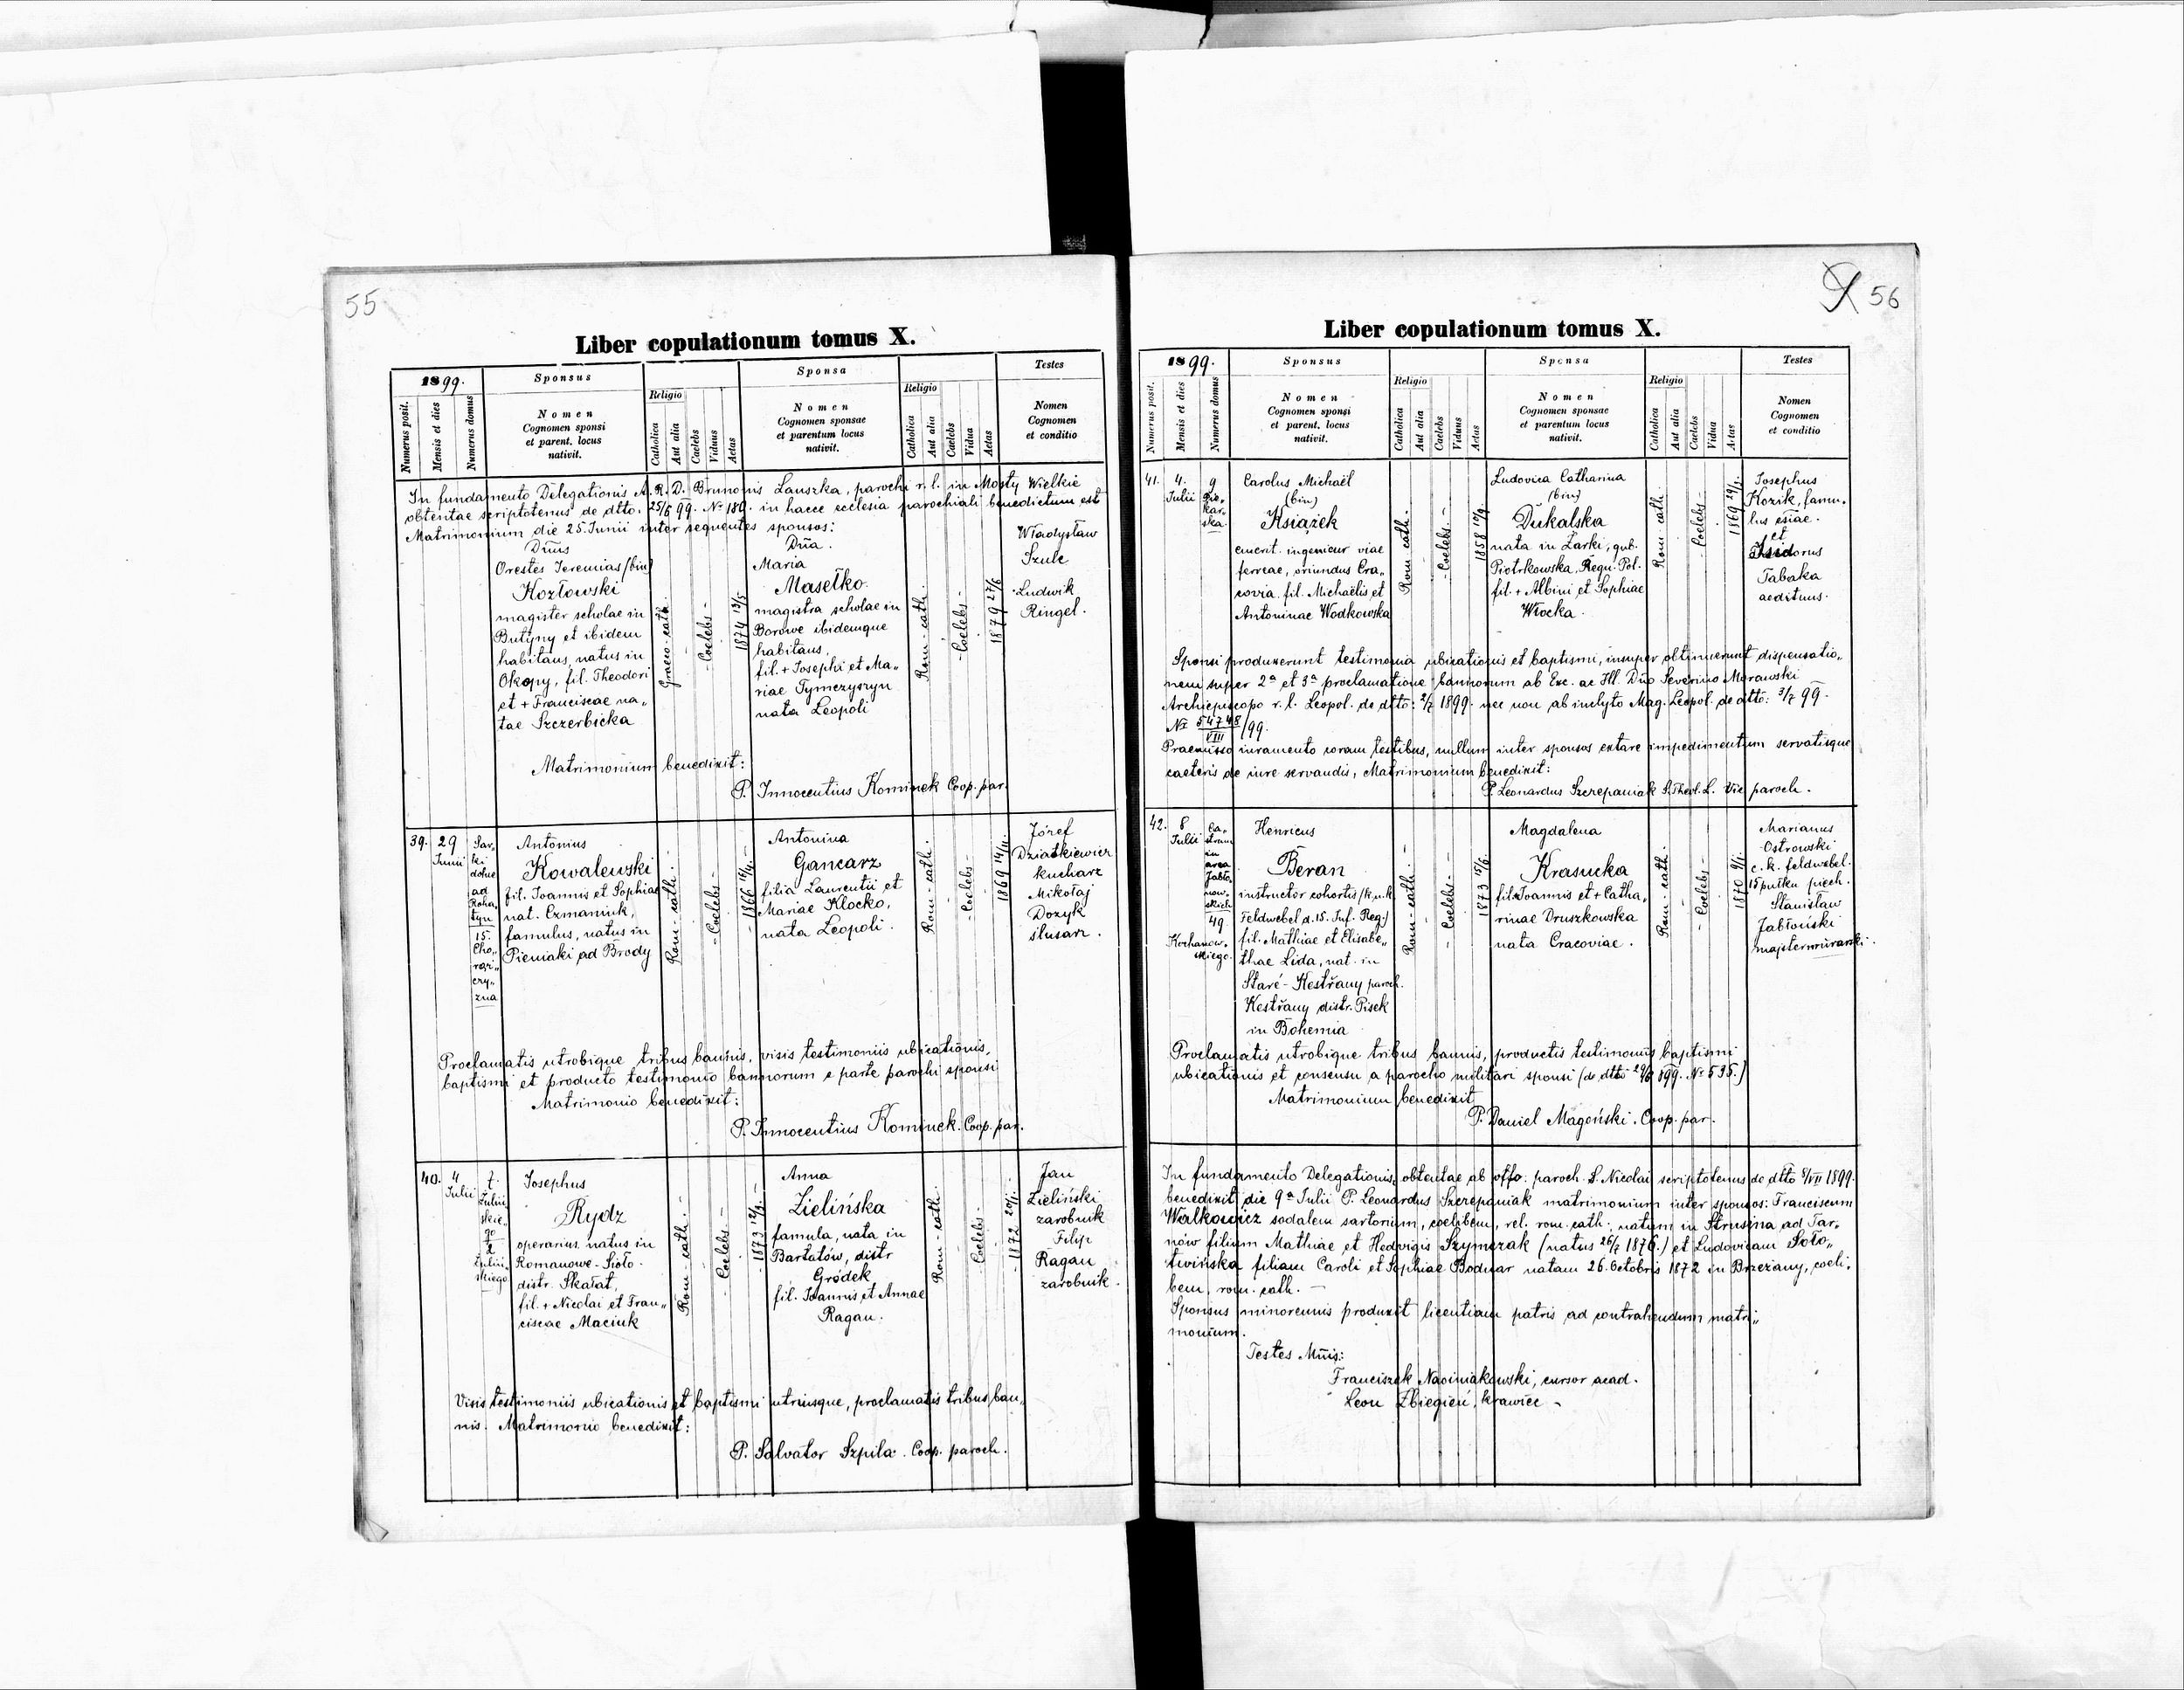 55
Liber copulationum tomus X.
1899.
Sponsus
Sponsa
Testes
Numerus posit.
Mensis et dies
Numerus domus
Nomen
Cognomen sponsi
et parent. locus
nativit.
Religio
Catholica
Aut alia
Caelebs
Viduus
Aetas
Nomen
Cognomen sponsae
et parentum locus
nativit.
Religio
Catholica
Aut alia
Caelebs
Vidua
Aetas
Nomen
Cognomen
et conditio
In fundamento Delegationis A. R. D. Brunonis Lauszka, parochi r. l. in Mosty Wielkie
obtentae scriptotenus de dtto. 25/6 99. Nr 180. in hacce ecclesia parochiali benedictum est
Matrimonium die 25. Junii inter sequentes sponsos:
Dnus
Orestes Jeremias (bin)
Kozłowski
magister scholae in
Butyny et ibidem
habitans, natus in
Okopy, fil. Theodori
et + Franciscae na„
tae Szczerbicka
Graeco-cath.
- Coelebs -
1874 13/5
Dna.
Maria
Masełko
magistra scholae in
Borowe ibidemque
habitans,
fil. + Josephi et Ma„
riae Tymczyszyn
nata Leopoli
Rom-cath.
- Coelebs -
1879 27/6
Władysław
Szulc
Ludwik
Ringel.
Matrimonium benedixit:
P. Innocentius Kominek Coop. par.
39.
29
Junii
Sar„
ki
dolne
ad
Roha„
tyn
15.
Cho„
rąż„
czy„
zna
Antonius
Kowalewski
fil. Joannis et Sophiae
nat. Czmaniuk,
famulus, natus in
Pieniaki ad Brody
Rom-cath.
- Coelebs -
Antonina
Gancarz
filia Laurentii et
Mariae Klocko,
nata Leopoli.
Rom-cath.
- Coelebs -
1869 14/11.
Józef
Dziatkiewicz
kucharz
Mikołaj
Dozyk
ślusarz.
Proclamatis utrobique tribus bannis, visis testimoniis ubicationis,
baptismi et producto testimonio bannorum e parte parochi sponsi
Matrimonio benedixit:
P. Innocentius Kominek. Coop. par.
40.
4
Julii
Josephus
Rydz
operarius natus in
Romanowe-Sioło
distr. Skałat,
fil. + Nicolai et Fran„
ciscae Maciuk
Rom-cath.
- Coelebs -
1873 12/3.
Anna
Zielińska
famula, nata in
Bartatów, distr
Gródek
fil. Joannis et Annae
Ragan.
Rom-cath.
Coelebs -
1872 20/1.
Jan
Zieliński
zarobnik
Filip
Ragan
zarobnik.
Visis testimoniis ubicationis et baptismi utriusque, proclamatis tribus ban„
nis. Matrimonio benedixit:
P. Salvator Szpila. Coop. paroch.
56
Liber copulationum tomus X.
1899.
Sponsus
Sponsa
Testes
Numerus posit.
Mensis et dies
Numerus domus
Nomen
Cognomen sponsi
et parent. locus
nativit.
Religio
Catholica
Aut alia
Caelebs
Viduus
Aetas
Nomen
Cognomen sponsae
et parentum locus
nativit.
Religio
Catholica
Aut alia
Caelebs
Vidua
Aetas
Nomen
Cognomen
et conditio
41.
4.
Julii
9
Pie„
kar„
ska.
Carolus Michaël
(bin)
Książek
emerit. ingenieur viae
ferreae, oriundus Cra„
covia. fil. Michaëlis et
Antoninae Wodkowska
Rom-cath.
- Coelebs. -
Ludovica Catharina
(bin)
Dukalska
nata in Żarki, gub.
Piotrkowska, Regn. Pol.
fil. + Albini et Sophiae
Włocka.
Rom-cath.
- Coelebs -
1869 29/1.
Josephus
Kozik, famu„
lus esiae.
et
Isidorus
Tabaka
aedituus.
Sponsi produxerunt testimonia ubicationis et baptismi, insuper obtinuerunt dispensatio„
nem super 2ª et 3ª proclamatione bannorum ab Exc. ac Ill. Dno Severino Morawski
Archiepiscopo r. l. Leopol. de dtto: 2/7 1899. nec non ab inclyto Mag. Leopol. de dtto: 3/7 99.
Nr 54748/VIII/99.
Praemisso iuramento coram testibus, nullum inter sponsos extare impedimentum servatisque
caeteris de iure servandis, Matrimonium benedixit:
P. Leonardus Szczepaniak S. Theol. L. Vic paroch.
42.
8
Julii
Ca„
strum
in
area
Jabło„
now„
skich
49
Kochanow„
skiego.
Henricus
Beran
instructor cohortis (k. u. k.
Feldwebel d. 15. Inf. Reg.)
fil. Mathiae et Elisabe„
thae Lida, nat. in
Staré-Kestřany paroch.
Kestřany distr. Pisek
in Bohemia
Rom-cath.
- Coelebs -
1873 15/6.
Magdalena
Krasucka
fil. + Joannis et + Catha„
rinae Druszkowska
nata Cracoviae.
Rom-cath.
- Coelebs -
Marianus
Ostrowski
c. k. feldwebel.
15 pułku piech.
Stanisław
Jabłoński
majster murarski.
Proclamatis utrobique tribus bannis, productis testimoniis baptismi
ubicationis et consensu a parocho militari sponsi
Matrimonium benedixit
P. Daniel Magoński. Coop. par.
In fundamento Delegationis, obtentae ab offo. paroch. S. Nicolai scriptotenus de dtto 8/VII 1899.
benedixit die 9ª Julii P. Leonardus Szczepaniak matrimonium inter sponsos: Franciscum
Walkowicz sodalem sartorium, coelibem, rel. rom. cath., natum in Strusina ad Tar„
nów filium Mathiae et Hedvigis Szymczak (natus 26/7 1876.) et Ludovicam Soło„
twińska filiam Caroli et Sophiae Bodnar natam 26. Octobris 1872 in Brzeżany, coeli„
bem, rom. cath. -
Sponsus minorennis produxit licentiam patris ad contrahendum matri„
monium.
Testes Mnis:
Franciszek Nawiniakowski, cursor acad.
Leon Zbiegień, krawiec -